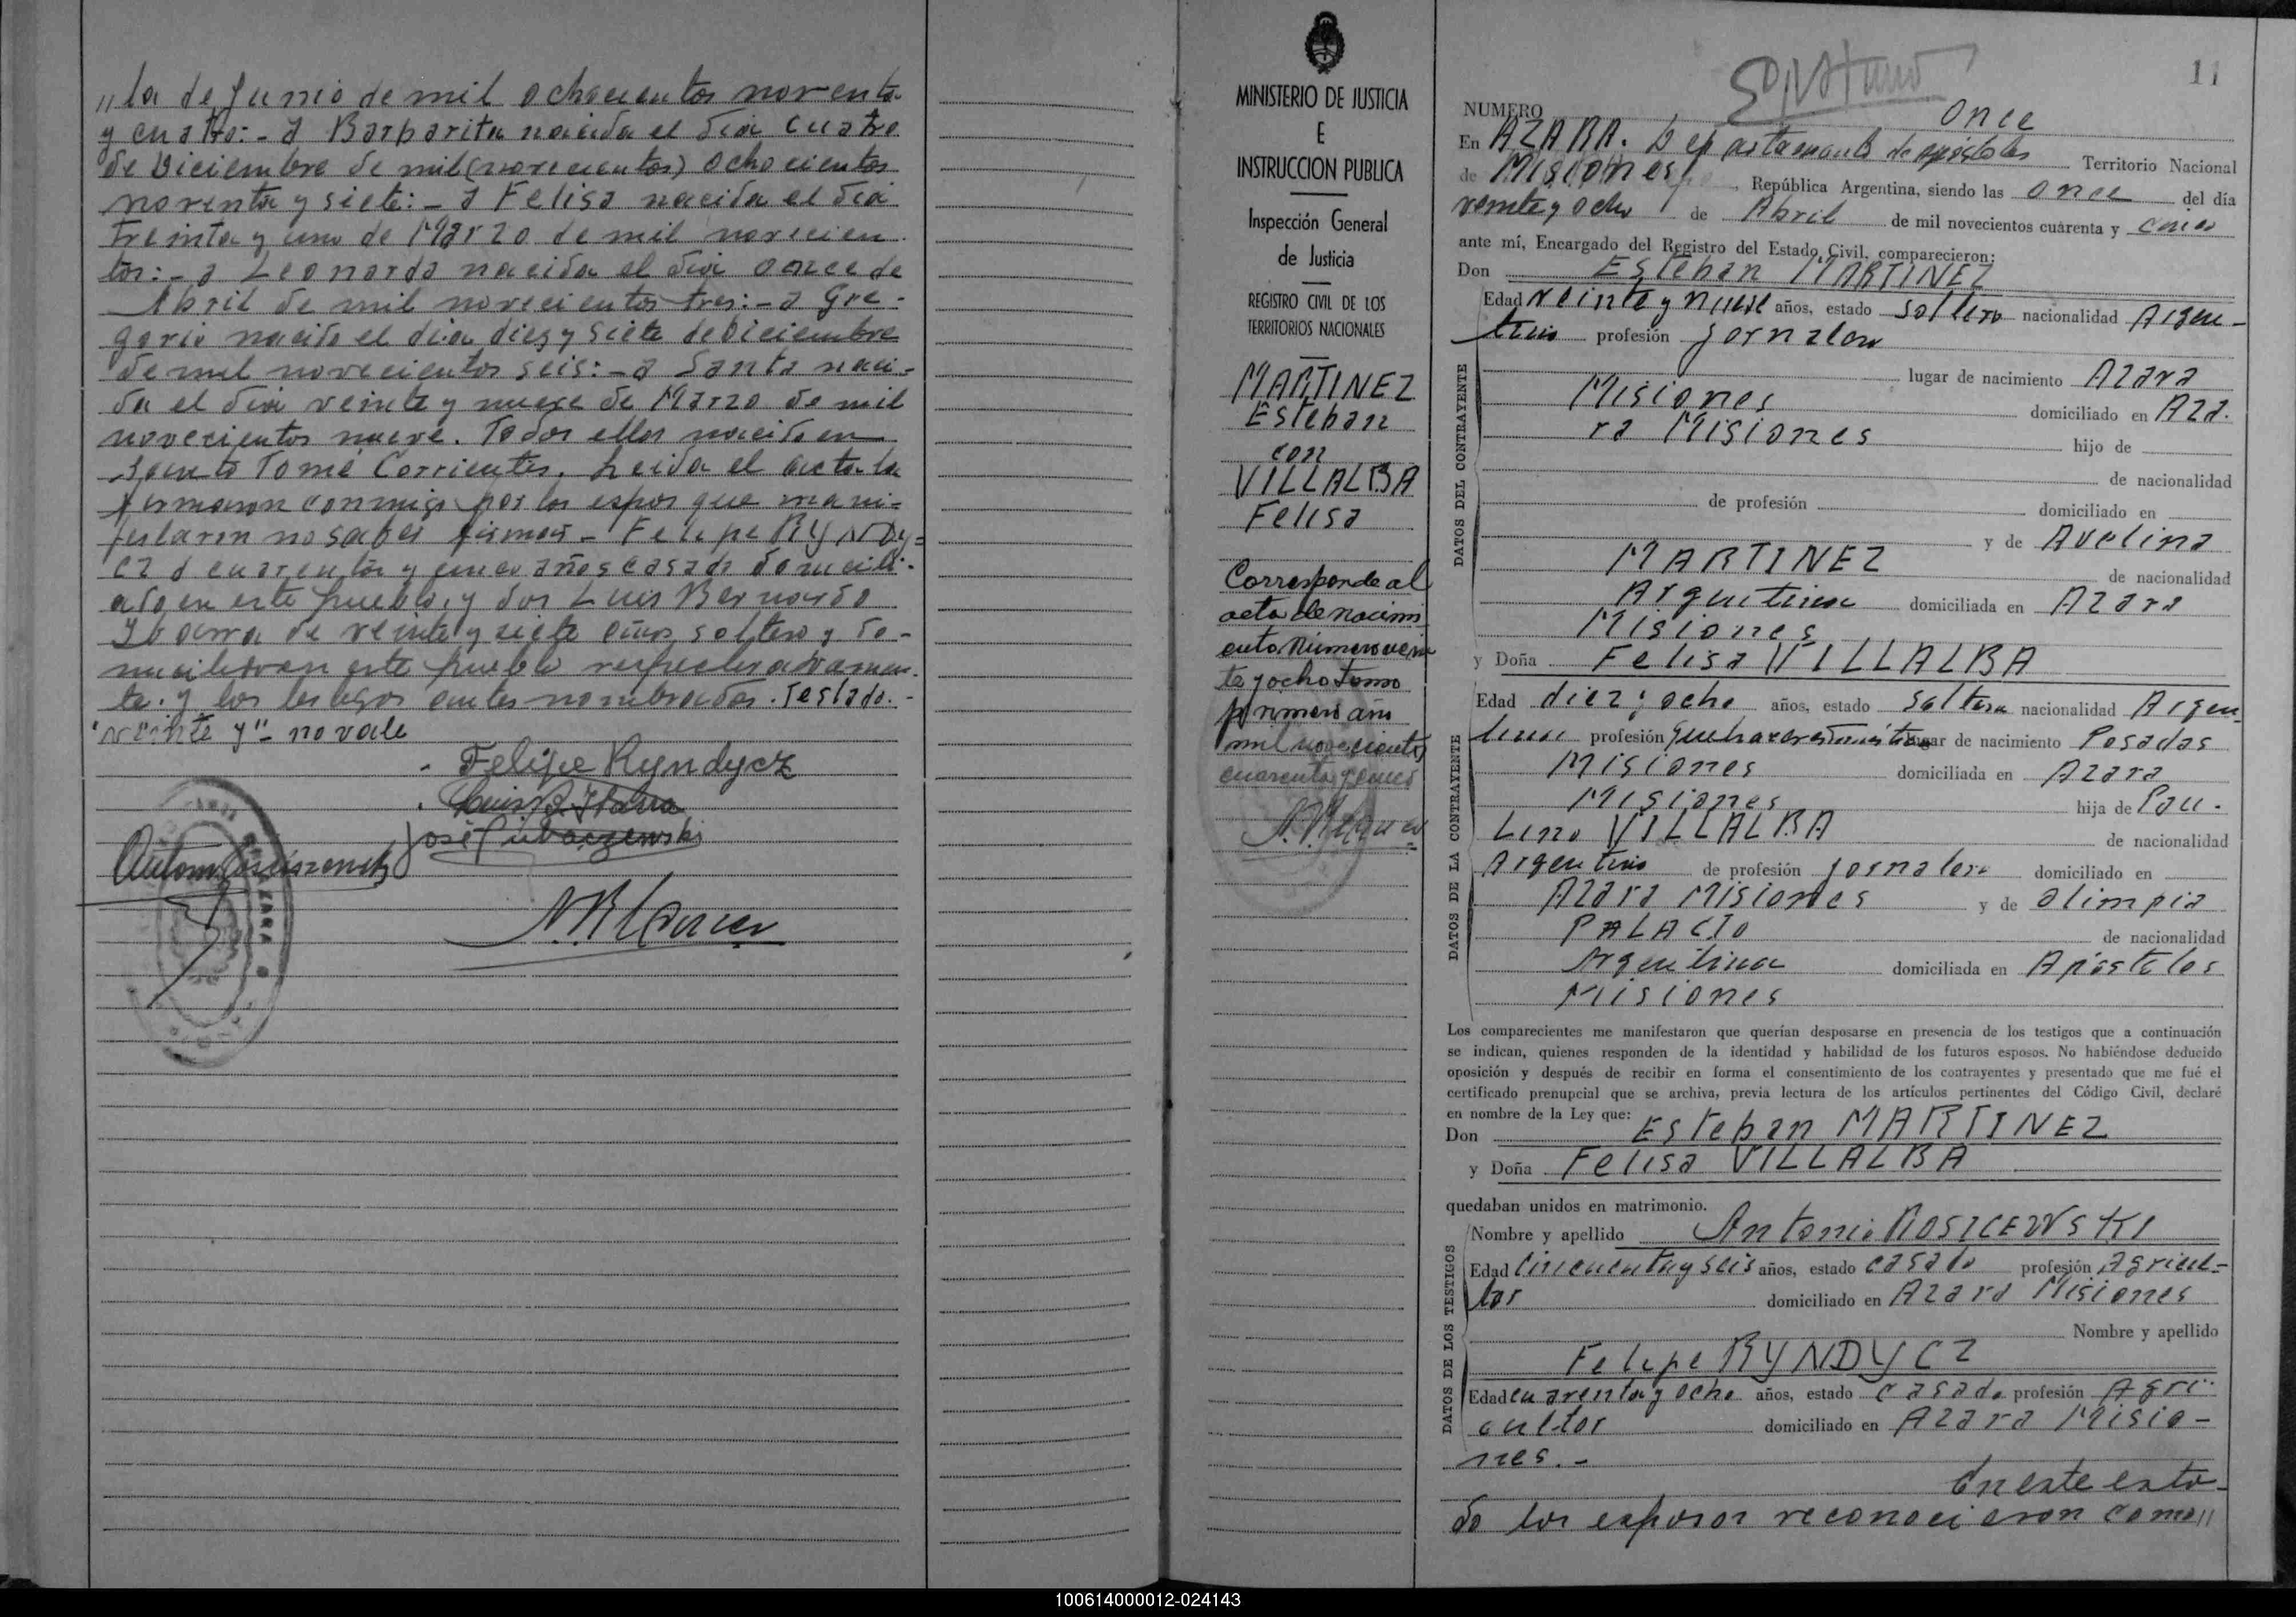 "la de Junio de mil ochocientos noventa
y cuatro:- a Barbarita nacida el dia cuatro
de Diciembre de mil (novecientos) ochocientos
noventa y siete:- a Felisa nacida el dia
treinta y uno de Marzo de mil novecien
tos:- a Leonarda nacida el dia once de
Abril de mil novecientos tres:- a Gre-
gorio nacido el dia diez y siete de Diciembre
de mil novecientos seis:- a Santa naci-
da el dia veinte y nueve de Marzo de mil
novecientos nueve. Todos ellos nacido en
Santo Tomé Corrientes. Leida el acta la
firmaron conmigo por los espos que mani-
festaron no saber firmar - Felipe RYNDY=
CZ d cuarenta y cinco años casado domicili-
ado en este pueblo, y don Luis Bernardo
Ybarra de veinte y siete años soltero y do-
miciliado en este pueblo
te. y los testigos antes nombrados. Testado.-
"veinte y"- no vale
Felipe Ryndycz
Luis B. Ibarra
José
MINISTERIO DE JUSTICIA
E
INSTRUCCION PUBLICA
Inspección General
de Justicia
REGISTRO CIVIL DE LOS
TERRITORIOS NACIONALES
MARTINEZ
Esteban
con
VILLALBA
Felisa
Corresponde al
acta de nacimi
ento número vein
te y ocho tomo
primero año
mil novecientos
cuarenta y cinco
11
NUMERO once
En AZARA. Departamento de Apóstoles Territorio Nacional
de Misiones, República Argentina, siendo las once del día
veinte y ocho de Abril de mil novecientos cuarenta y cinco
ante mí, Encargado del Registro del Estado Civil, comparecieron:
Don Esteban MARTINEZ
DATOS DEL CONTRAYENTE
Edad veinte y nueve años, estado soltero nacionalidad Argen-
tino profesión jornalero
lugar de nacimiento Azara
Misiones domiciliado en Aza-
ra Misiones hijo de
de nacionalidad
de profesión domiciliado en
y de Avelina
MARTINEZ de nacionalidad
Argentina domiciliada en Azara
Misiones
y Doña Felisa VILLALBA
DATOS DE LA CONTRAYENTE
Edad diez y ocho años, estado soltera nacionalidad Argen
tina profesión lugar de nacimiento Posadas
Misiones domiciliada en Azara
Misiones hija de Pau-
lino VILLALBA de nacionalidad
Argentino de profesión jornalero domiciliado en
Azara Misiones y de Olimpia
PALACIO de nacionalidad
Argentina domiciliada en Apóstoles
Misiones
Los comparecientes me manifestaron que querían desposarse en presencia de los testigos que a continuación
se indican, quienes responden de la identidad y habilidad de los futuros esposos. No habiéndose deducido
oposición y después de recibir en forma el consentimiento de los contrayentes y presentado que me fué el
certificado prenupcial que se archiva, previa lectura de los artículos pertinentes del Código Civil, declaré
en nombre de la Ley que:
Don Esteban MARTINEZ
y Doña Felisa VILLALBA
quedaban unidos en matrimonio.
DATOS DE LOS TESTIGOS
Nombre y apellido Antonio
Edad cincuenta y seis años, estado casado profesión Agricul-
tor domiciliado en Azara Misiones
Nombre y apellido
Felipe RYNDYCZ
Edad cuarenta y ocho años, estado casado profesión Agri-
cultor domiciliado en Azara Misio-
nes.-
En este esta-
do los esposos reconocieron como"
100614000012-024143